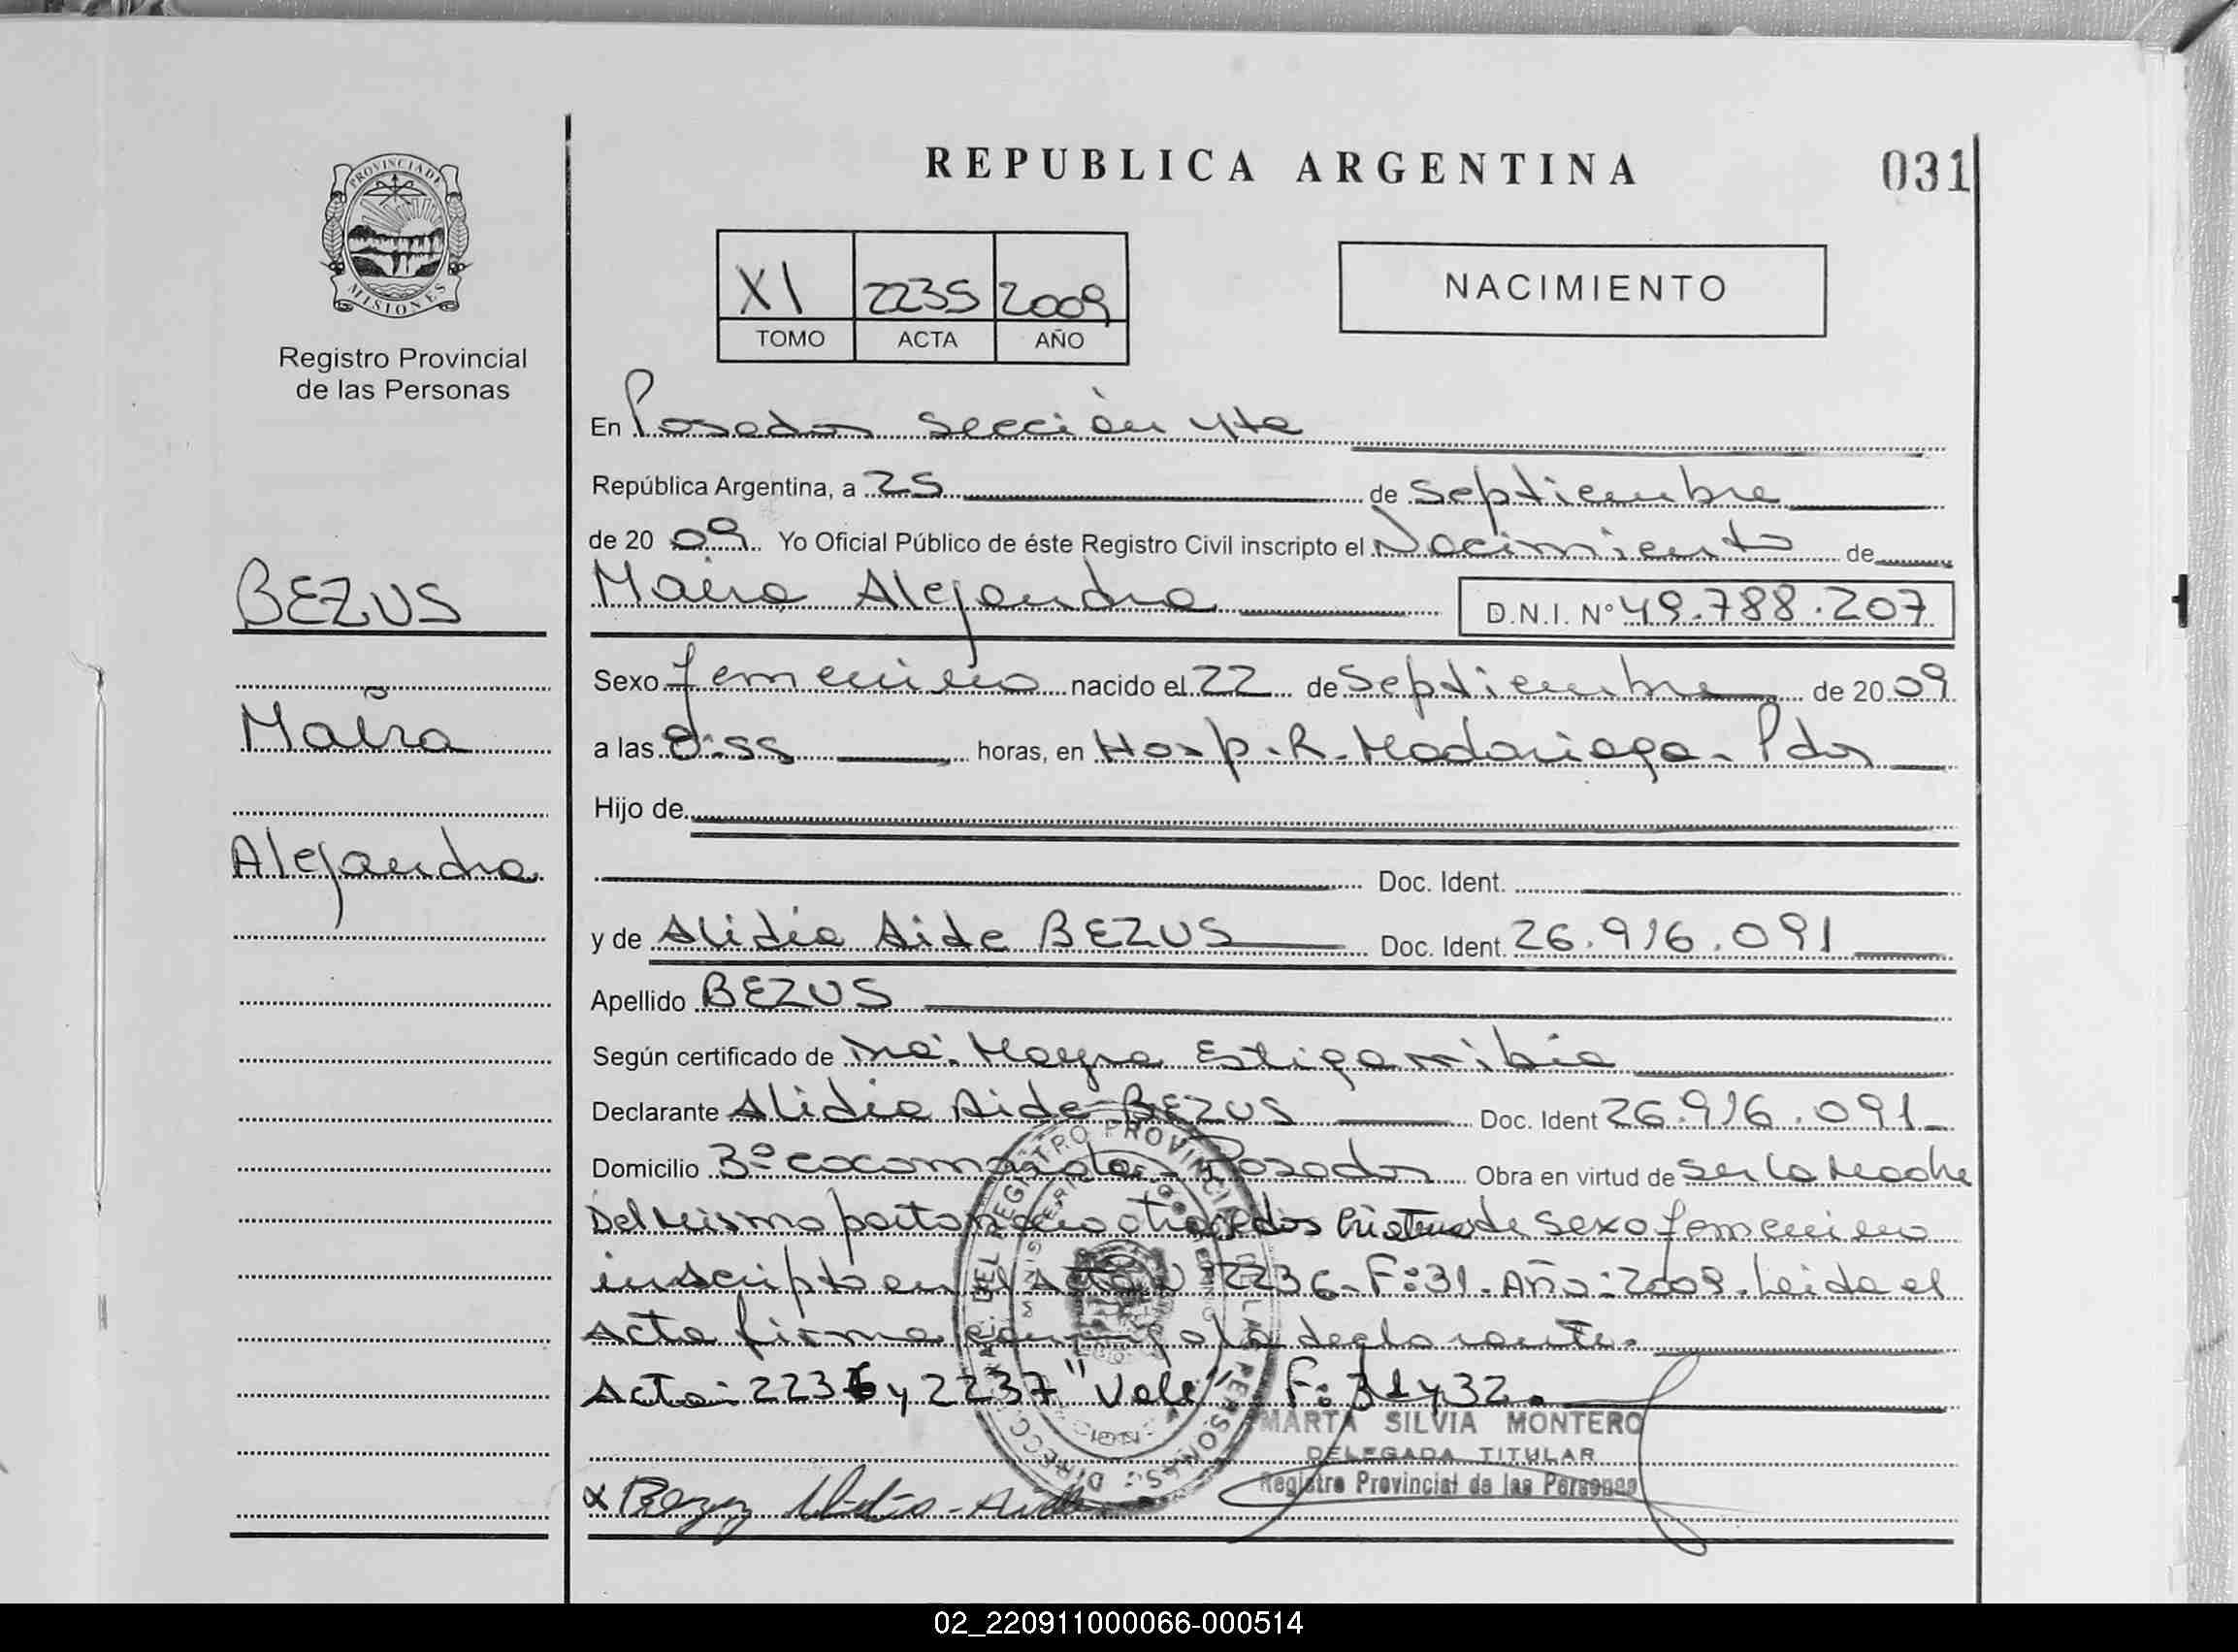 REPUBLICA ARGENTINA
031
PROVINCIA DE
MISIONES
Registro Provincial
de las Personas
XI 2235 2009
TOMO ACTA AÑO
NACIMIENTO
En Posadas sección 4ta
República Argentina, a 25 de Septiembre
de 20 09 Yo Oficial Público de éste Registro Civil inscripto el Nacimiento de
Maira Alejandra D.N.I. Nº 49.788.207
BEZUS
Maira
Alejandra
Sexo femenino nacido el 22 de Septiembre de 20 09
a las 8:55 horas, en Hosp. R. Madariaga - Pdas
Hijo de
Doc. Ident.
y de Alidia Aide BEZUS Doc. Ident. 26.916.091
Apellido BEZUS
Según certificado de Dra. Mayra Estigarribia
Declarante Alidia Aide BEZUS Doc. Ident 26.916.091
Domicilio 3º Posadas Obra en virtud de Ser la Madre
Del mismo parto de sexo femenino
inscripto en Acta Nº 2236 - F:31 - Año: 2009. Leida el
Acta firma la declarante.
Acta: 2236 y 2237 "Vale" F: 31 y 32.
MARTA SILVIA MONTERO
DELEGADA TITULAR
Registro Provincial de las Personas
x Alidia - Aide
02_220911000066-000514